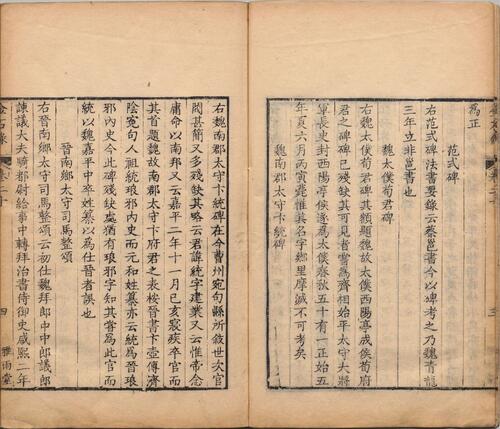 為正
范式碑
右范式碑法書要錄云蔡邕書今以碑考之乃魏青龍
三年立非邕書也
魏太僕荀君碑
右魏太僕荀君碑其額題魏故太僕西陽亭成侯荀府
君之碑碑已殘缺其可見者嘗為齊相始平太守大將
軍長史封西陽亭侯遂為太僕春秋五十有一正始五
年夏六月丙寅薨惟其名字鄉里摩滅不可考矣
魏南郡太守卞統碑
右魏南郡太守卞統碑在今曹州宛句縣所敘世次官
閥甚簡又多殘缺其略云君諱統字建業又云惟帝念
庸命以南邦又云嘉平二年十一月己亥寢疾卒官而
其首題魏故南郡太守卞府君之表桉晉書卞壺傳濟
陰寃句人祖統琅邪內史而元和姓纂亦云統為晉琅
邪內史今此碑殘缺處猶有琅邪字知其嘗為此官而
統以魏嘉平中卒姓纂以為仕晉者誤也
晉南鄉太守司馬整頌
右晉南鄉太守司馬整頌云初仕魏拜郎中中郎議郎
諫議大夫騎都尉給事中轉拜治書侍御史咸熙二年
金石錄
卷二十
四
雅雨堂